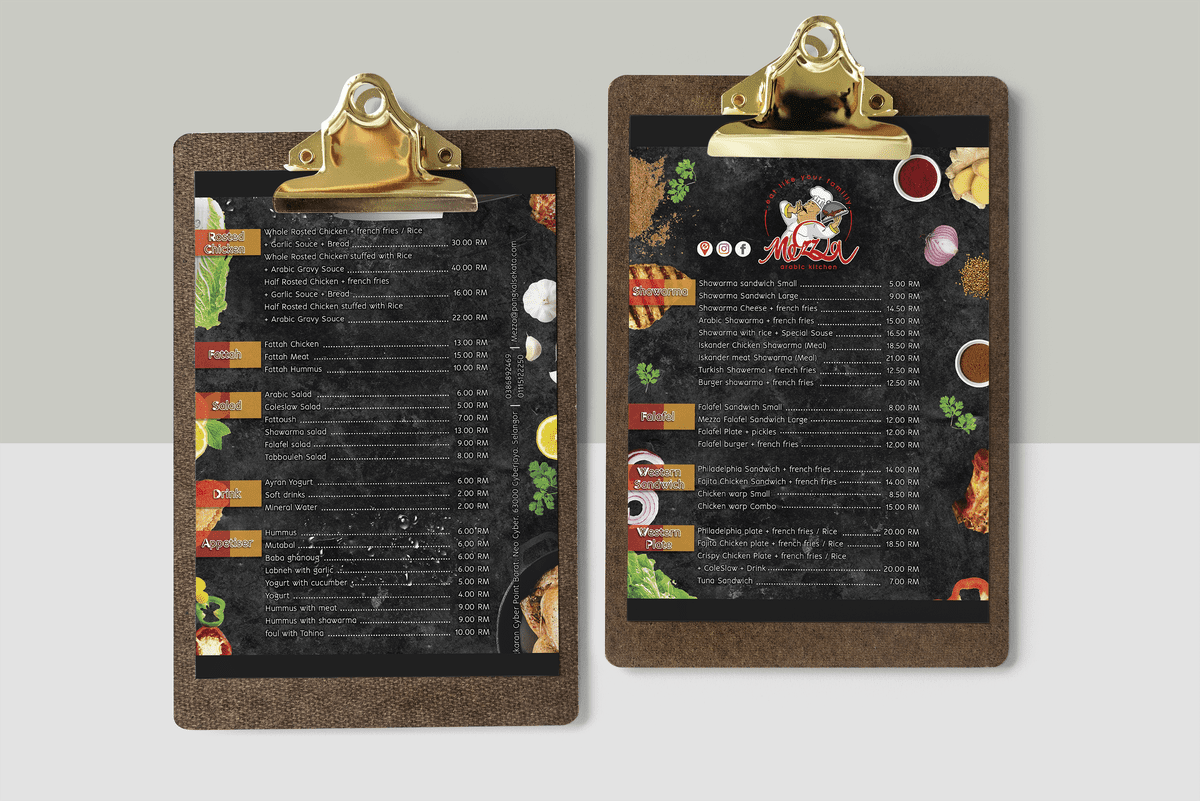 Rosted
Chicken
Whole Rosted Chicken + french fries / Rice
+ Garlic Souce + Bread 30.00 RM
Whole Rosted Chicken stuffed with Rice
+ Arabic Gravy Souce 40.00 RM
Half Rosted Chicken + french fries
+ Garlic Souce + Bread 16.00 RM
Half Rosted Chicken stuffed with Rice
+ Arabic Gravy Souce 22.00 RM
Fattah
Fattah Chicken 13.00 RM
Fattah Meat 15.00 RM
Fattah Hummus 10.00 RM
Salad
Arabic Salad 6.00 RM
Coleslaw Salad 5.00 RM
Fattoush 7.00 RM
Shawarma salad 13.00 RM
Falafel salad 9.00 RM
Tabbouleh Salad 8.00 RM
Drink
Ayran Yogurt 6.00 RM
Soft drinks 2.00 RM
Mineral Water 2.00 RM
Appetiser
Hummus 6.00 RM
Mutabal 6.00 RM
Baba ghanoug 6.00 RM
Labneh with garlic 6.00 RM
Yogurt with cucumber 5.00 RM
Yogurt 4.00 RM
Hummus with meat 9.00 RM
Hummus with shawarma 9.00 RM
foul with Tahina 10.00 RM
Cyber Point Barat Neo Cyber, 63000 Cyberjaya, Selangor | 0386892469 | Mezza@pangkalsekata.com
01115122250
eat like your familiy
Mezza
arabic kitchen
Shawarma
Shawarma sandwich Small 5.00 RM
Shawarma Sandwich Large 9.00 RM
Shawarma Cheese + french fries 14.50 RM
Arabic Shawarma + french fries 15.00 RM
Shawarma with rice + Special Souse 16.50 RM
Iskander Chicken Shawarma (Meal) 18.50 RM
Iskander meat Shawarma (Meal) 21.00 RM
Turkish Shawerma + french fries 12.50 RM
Burger shawarma + french fries 12.50 RM
Falafel
Falafel Sandwich Small 8.00 RM
Mezza Falafel Sandwich Large 12.00 RM
Falafel Plate + pickles 12.00 RM
Falafel burger + french fries 12.00 RM
Western
Sandwich
Philadelphia Sandwich + french fries 14.00 RM
Fajita Chicken Sandwich + french fries 14.00 RM
Chicken warp Small 8.50 RM
Chicken warp Combo 15.00 RM
Western
Plate
Philadelphia plate + french fries / Rice 20.00 RM
Fajita Chicken plate + french fries / Rice 18.50 RM
Crispy Chicken Plate + french fries / Rice
+ ColeSlaw + Drink 20.00 RM
Tuna Sandwich 7.00 RM